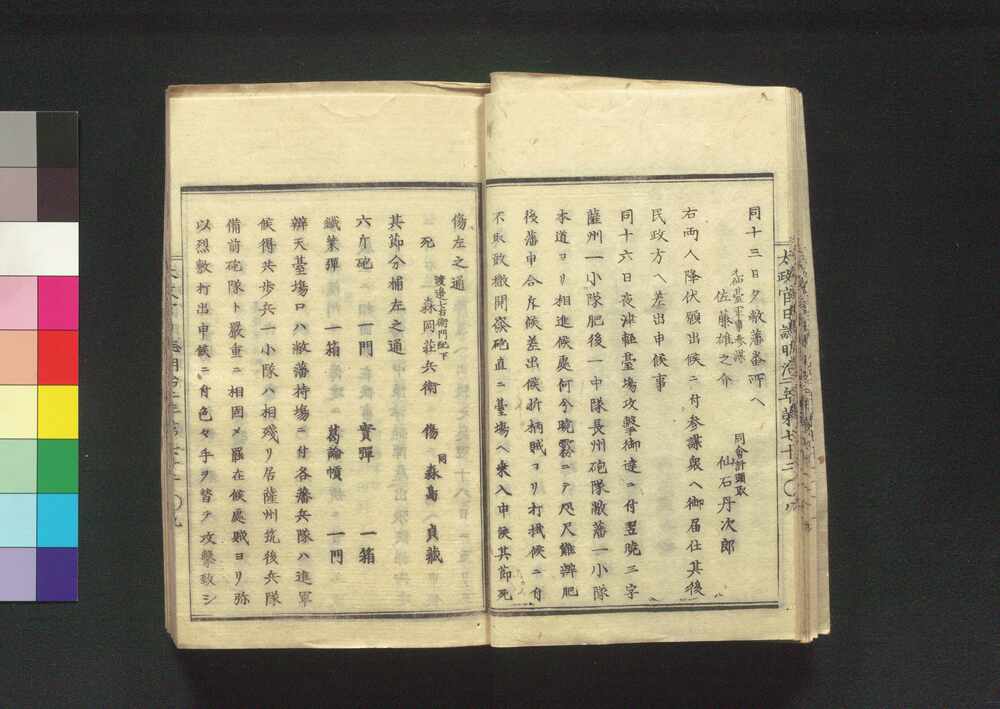 太政官日誌明治二年第七十三
同十三日夕敝藩番所へ
元仙臺軍事参謀
佐藤雄之介
同會計頭取
仙石丹次郎
右両人降伏願出候ニ付参謀衆へ御届仕其後
民政方へ差出申候事
同十六日夜津輕臺場攻擊御達ニ付翌曉三字
薩州一小隊肥後一中隊長州砲隊敝藩一小隊
本道ヨリ相進候處何分曉霧ニテ咫尺難辨肥
後藩申合斥候差出候折柄賊ヨリ打掛候ニ付
不取敢撒開發砲直ニ臺場へ乗入申候其節死
傷左之通
渡邊七右衛門配下
死 森岡莊兵衛
同
傷 森高貞藏
其節分捕左之通
六斤砲 一門 實彈 一箱
鐵葉彈 一箱 葛論幀 一門
辨天臺場口ハ敝藩持場ニ付各藩兵隊ハ進軍
候得共歩兵一小隊ハ相殘リ居薩州筑後兵隊
備前砲隊ト嚴重ニ相固メ罷在候處賊ヨリ弥
以烈敷打出申候ニ付色々手ヲ替テ攻擊致シ